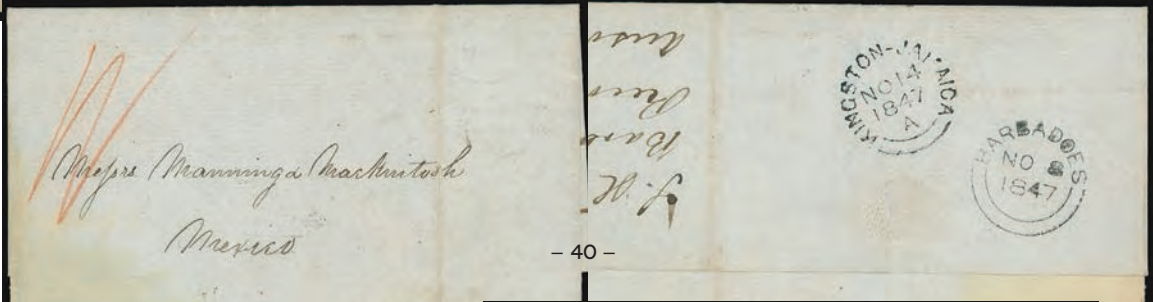 Messrs Manning & MacKintosh
Mexico
KINGSTON-JAMAICA
NO 14
1847
A
BARBADOES
NO 8
1847
– 40 –